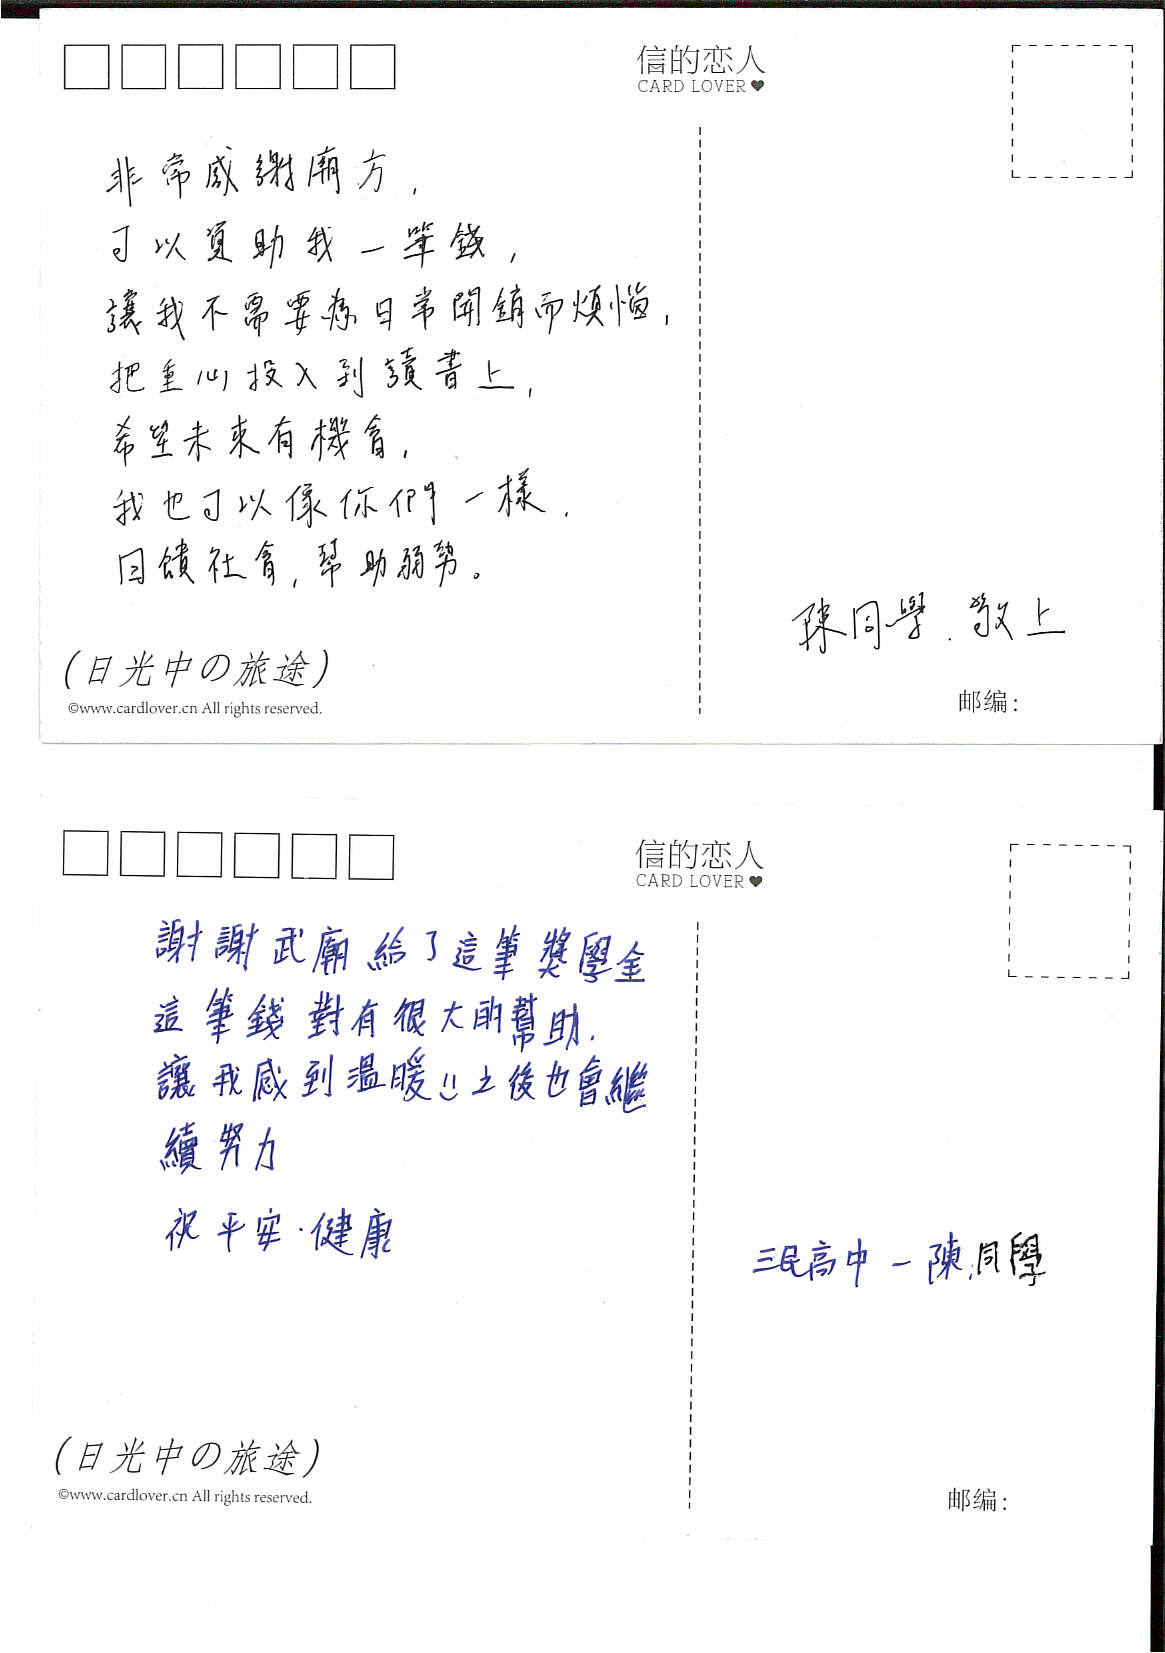 信的恋人
CARD LOVER
非常感謝廟方，
可以資助我一筆錢，
讓我不需要為日常開銷而煩惱，
把重心投入到讀書上，
希望未來有機會，
我也可以像你們一樣，
回饋社會，幫助弱勢。
陳同學 敬上
(日光中の旅途)
©www.cardlover.cn All rights reserved.
邮编：
信的恋人
CARD LOVER
謝謝武廟給了這筆獎學金
這筆錢對有很大的幫助，
讓我感到溫暖!! 之後也會繼
續努力
祝平安·健康
三民高中－陳同學
(日光中の旅途)
©www.cardlover.cn All rights reserved.
邮编：